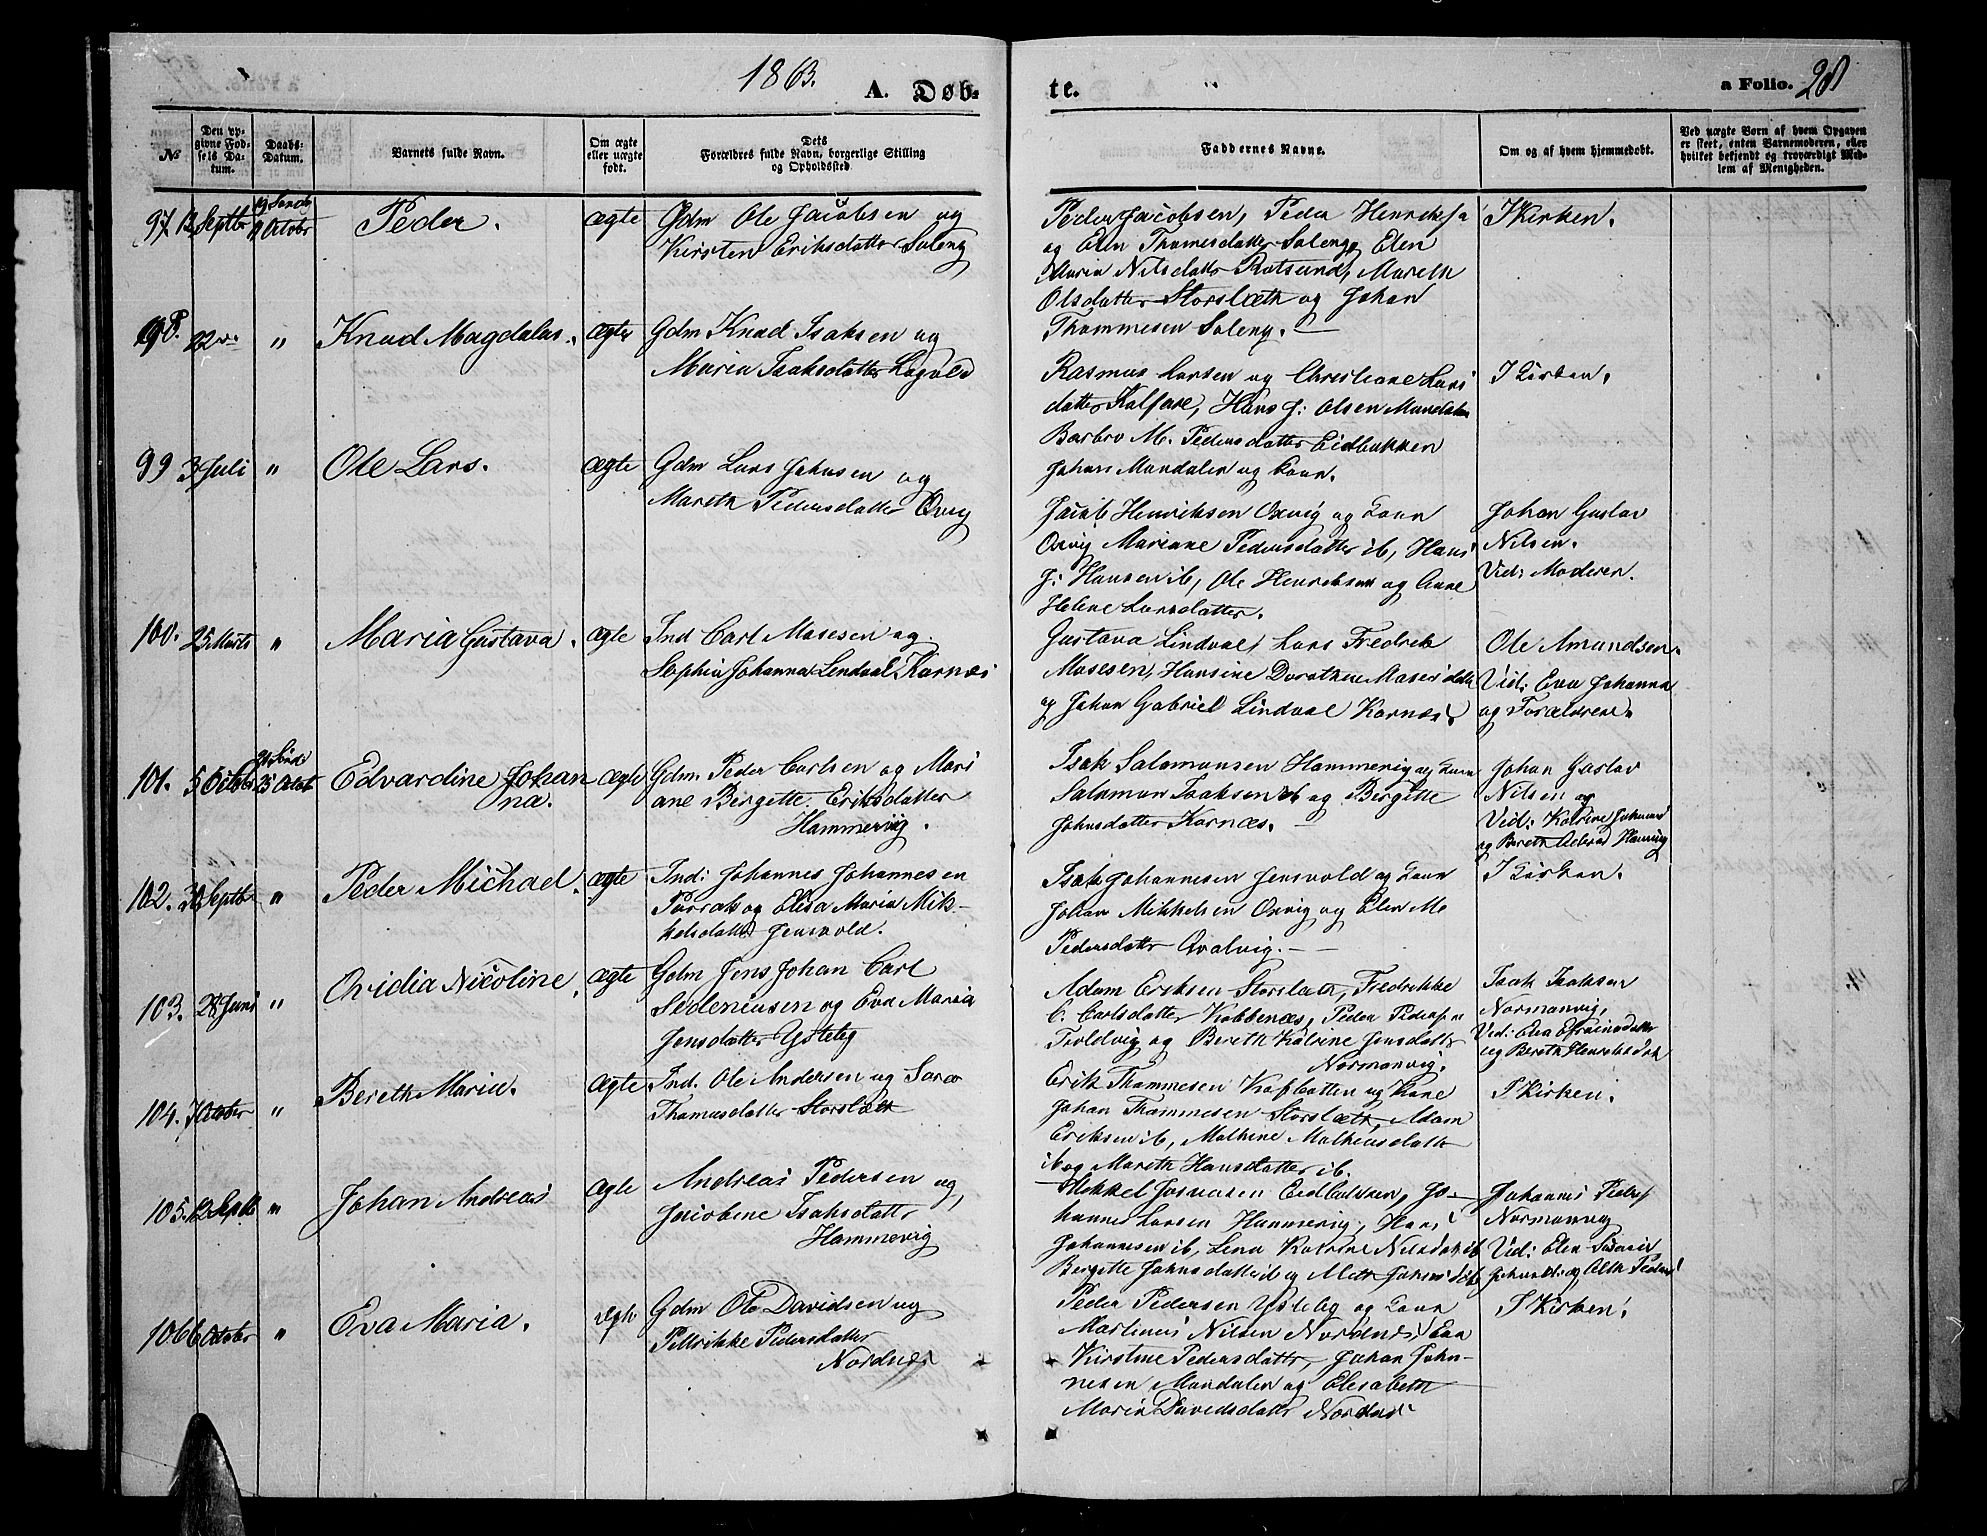 1863.
A. Døb-
te.
a Folio. 28
No
Den op-
givne Fød-
sels Da-
tum.
Daabs-
Datum.
Barnets fulde Navn.
Om ægte
eller uægte
født.
Dets
Forældres fulde Navn, borgerlige Stilling
og Opholdssted.
Faddernes Navne.
Om og af hvem hjemmedøbt.
Ved uægte Børn af hvem Opgaven
er skeet, enten Barnemoderen, eller
hvilket bekjendt og troværdigt Med-
lem af Menigheden.
97 12 Septbr Octobr Peder. ægte Gdm Ole Jacobsen og
Kirsten Eriksdatter Soleng
Peder Jacobsen, Peder
og Elen Thomesdatter Soleng, Elen
Maria Nilsdatter Rotsund, Mareth
Olsdatter Storslæth og Johan
Thommesen Soleng.
I Kirken.
98. 22 " Knud Magdalus. ægte Gdm Knud Isaksen og
Maria Isaksdatter
Rasmus Larsen og Christiane Lars
datter Kalfare, Hans J: Olsen Mandalen
Barbro M. Pedersdatter Eidbakken
Johan Mandalen og Kone.
I Kirken.
99 3 Juli " Ole Lars. ægte Gdm Lars Johnsen og
Mareth Pedersdatter Oxvig
Jacob Henriksen Oxvig og Kone
Oxvig Mariane Pedersdatter ib, Hans
J: Hansen ib, Ole Henriksen og Anne
Helene Larsdatter.
Johan Gustav
Nilsen.
Vid: Moderen.
100. 25 Marts " Maria Gustava. ægte Ind Carl Mosesen og
Sophia Johanna Lendval Karnes
Gustava Lindval, Lars Fredrik
Mosesen, Hansine Dorothea Moses datter
og Johan Gabriel Lindval Karnes.
Ole Amundsen.
Vid: Eva Johanna
og Forældrene.
101. 5 Octobr 25 Octob Edvardine Johan
na.
ægte Gdm. Peder Carlsen og Mari
ane Bergette Eriksdatter
Hammervig.
Isak Salamonsen Hammervig og Kone
Salamon Isaksen ib og Bergitte
Johnsdatter Karnæs.
Johan Gustav
Nilsen og
Vid: Katrine
og Bereth
102. 30 Septbr " Peder Michael. ægte Ind: Johannes Johannesen
Porrak og Elisa Maria Mik-
kelsdatter Jensvold.
Isak Johannesen Jensvold og Kone
Johan Mikkelsen Oxvig og Elen M
Pedersdatter Qvalvig.
I Kirken.
103. 28 Juni " Ovidia Nicoline. ægte Gdm Jens Johan Carl
Sedeniusen og Eva Maria
Jensdatter Ysteby
Adam Eriksen Storslæth, Fredrikke
C. Carlsdatter Kobbenæs, Peder Peders
Troldvig og Bereth Katrine Jensdatter
Normanvig.
Isak Isaksen
Normanvig,
Vid: Eva Efraimsdatter
og Bereth
104. 7 Octobr " Bereth Maria. ægte Ind. Ole Andersen og Sara
Thomasdatter Storslæth
Erik Thommesen Kofbotten og Kone
Johan Thommesen Storslæth, Adam
Eriksen ib, Mathine Mathiusdatt
ib og Mareth Hansdatter ib.
I Kirken.
105. 12 Septb " Johan Andreas ægte Andreas Pedersen og
Jacobine Isaksdatter
Hammervig
Mikkel Josvasen Eidbakken, Jo-
hannes Larsen Hammervig, Hans
Johannesen ib, Lena Katrine Nilsdat ib
Bergitte Johnsdatter ib og
Johannes Peders
Normanvig
Vid: Elen
106 6 Octobr " Eva Maria. ægte Gdm Ole Davidsen og
Petrikke Pedersdatter
Nordnes
Peder Pedersen Ysteby og Kone
Martinus Nilsen Nordnes, Eva
Kirstine Pedersdatter, Johan Joha-
nesen Mandalen og Elisabeth
Maria Davidsdatter Nordnes
I Kirken.